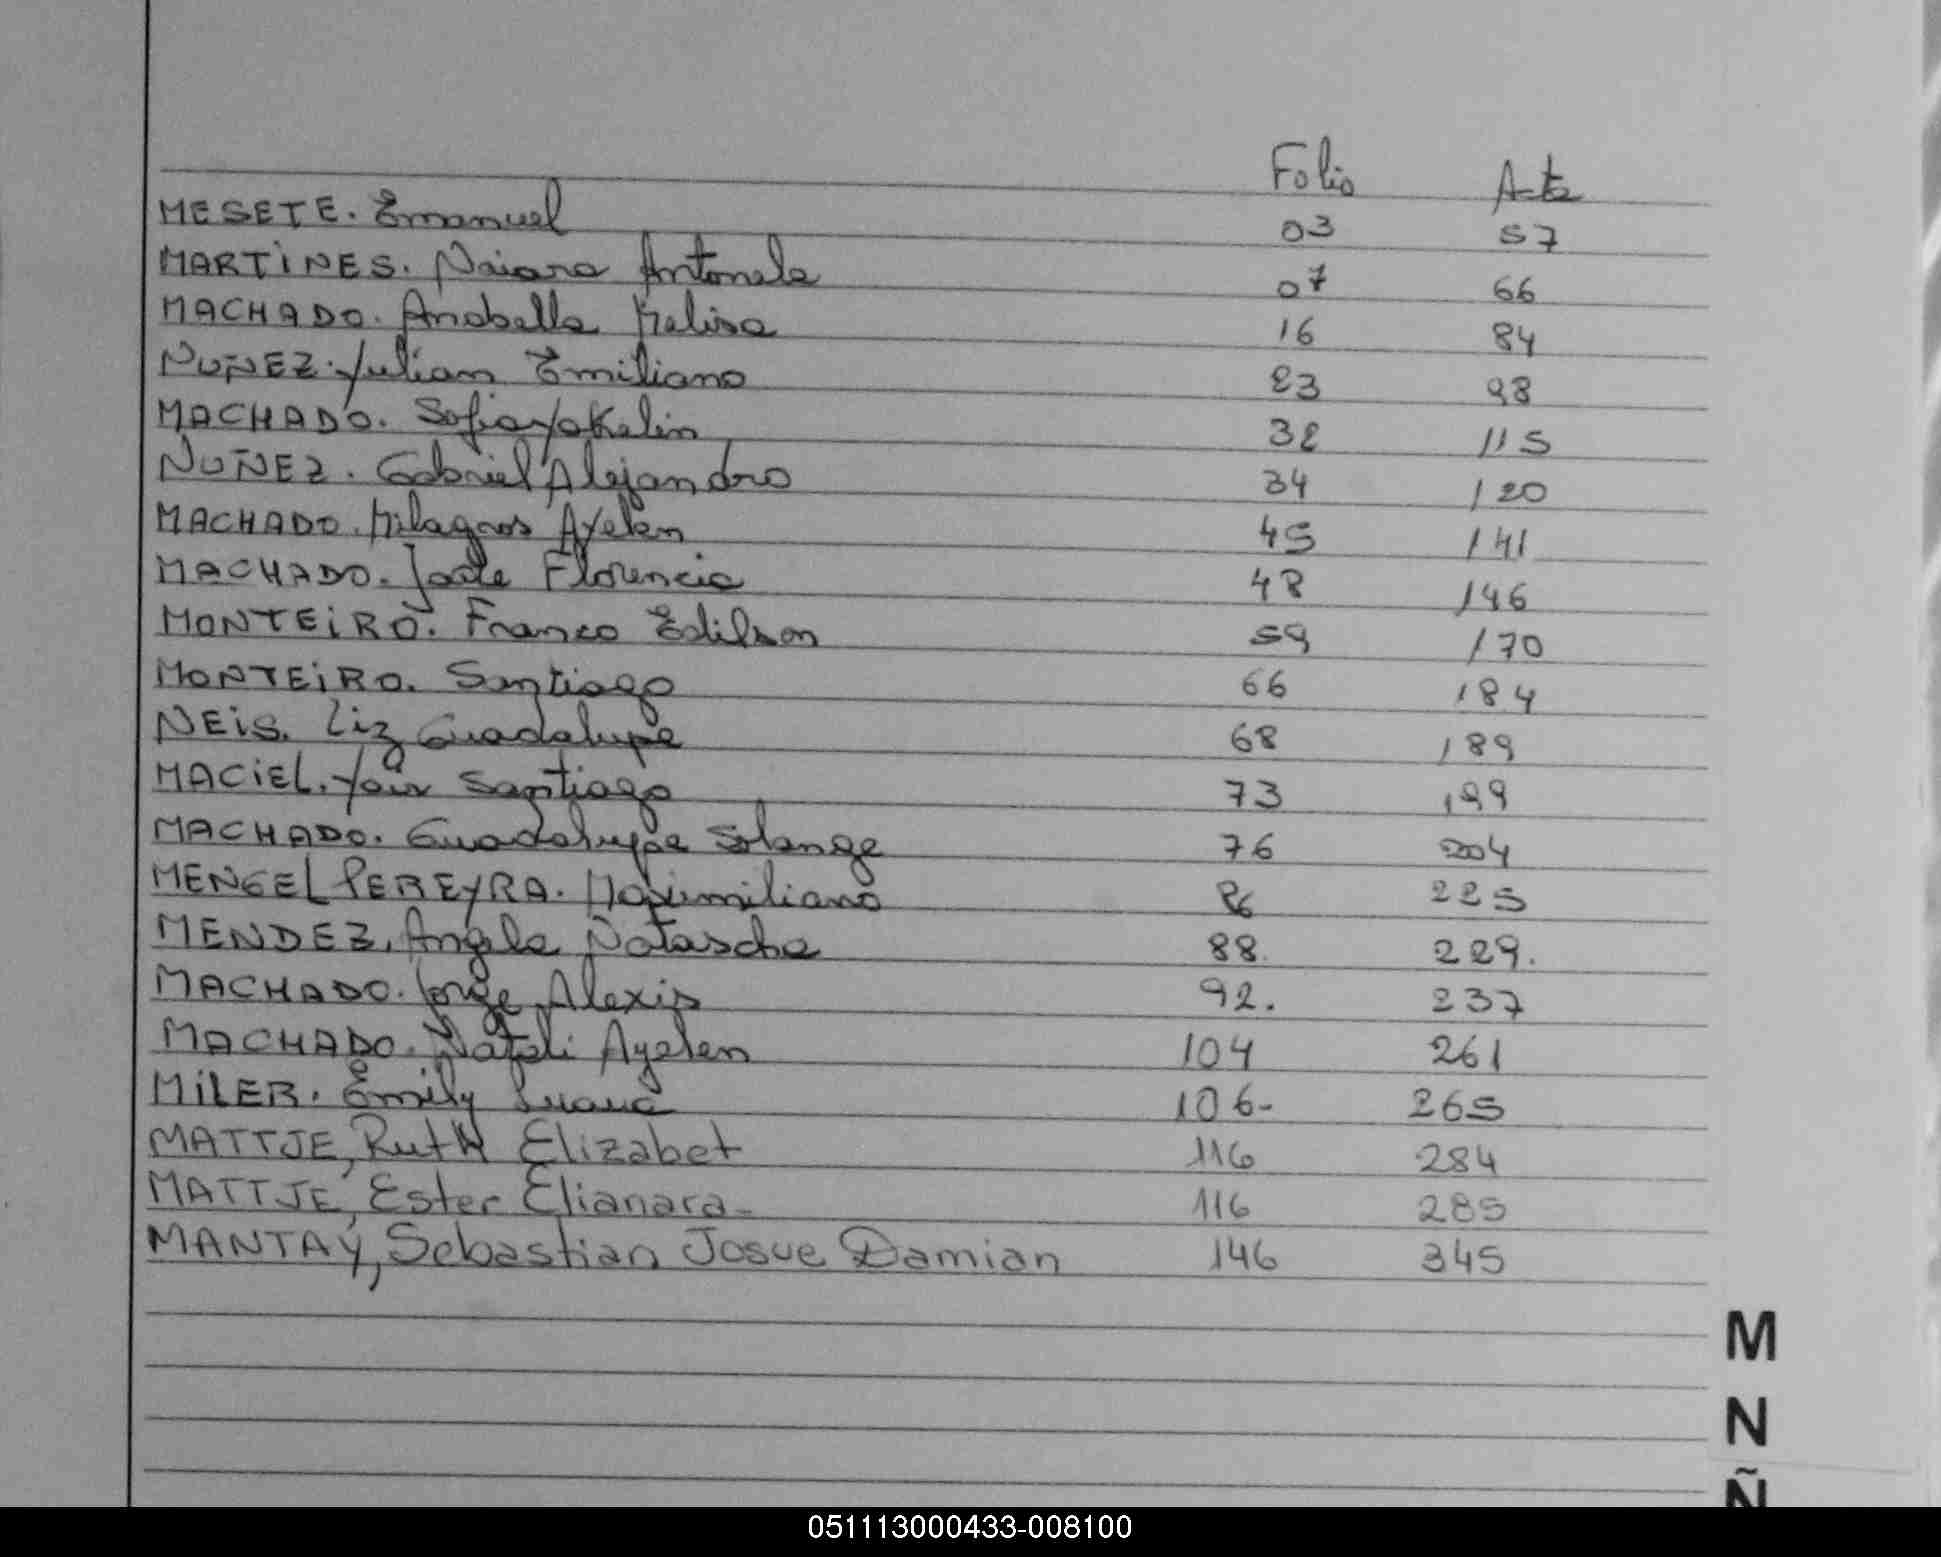 Folio Acta
MESETE. Emanuel 03 57
MARTiNES. Naiara Antonela 07 66
MACHADO. Anabella Melisa 16 84
NUÑEZ. Yulian Emiliano 23 98
MACHADO. Sofia Yakelin 32 115
NUÑEZ. Gabriel Alejandro 34 120
MACHADO. Milagros Ayelen 45 141
MACHADO. Florencia 48 146
MONTEiRO. Franco Edilson 59 170
MONTEiRO. Santiago 66 184
NEiS. Liz Guadalupe 68 189
MACiEL. Yair Santiago 73 199
MACHADO. Guadalupe Solange 76 204
MENGEL PEREYRA. Maximiliano 86 225
MENDEZ, Angela Natascha 88. 229.
MACHADO. Jorge Alexis 92. 237
MACHADO. Natali Ayelen 104 261
MiLER. Emily Luana 106- 265
MATTJE, Ruth Elizabet 116 284
MATTJE, Ester Elianara- 116 285
MANTAY, Sebastian Josue Damian 146 345
M
N
Ñ
051113000433-008100